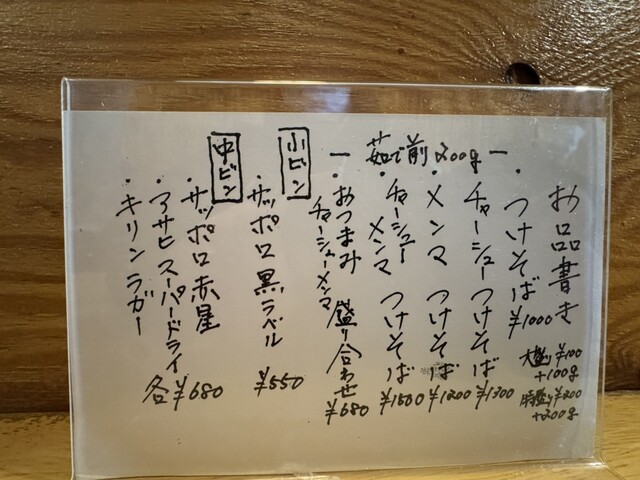 お品書き
大盛り¥100
+100g
特盛り¥200
+200g
― 茹で前200g ―
・つけそば ¥1000
・チャーシューつけそば ¥1300
・メンマ つけそば ¥1200
・チャーシューメンマ つけそば ¥1500
・おつまみ チャーシューメンマ 盛り合わせ ¥680
小ビン
・サッポロ黒ラベル ¥550
中ビン
・サッポロ赤星
・アサヒスーパードライ
・キリンラガー
各¥680